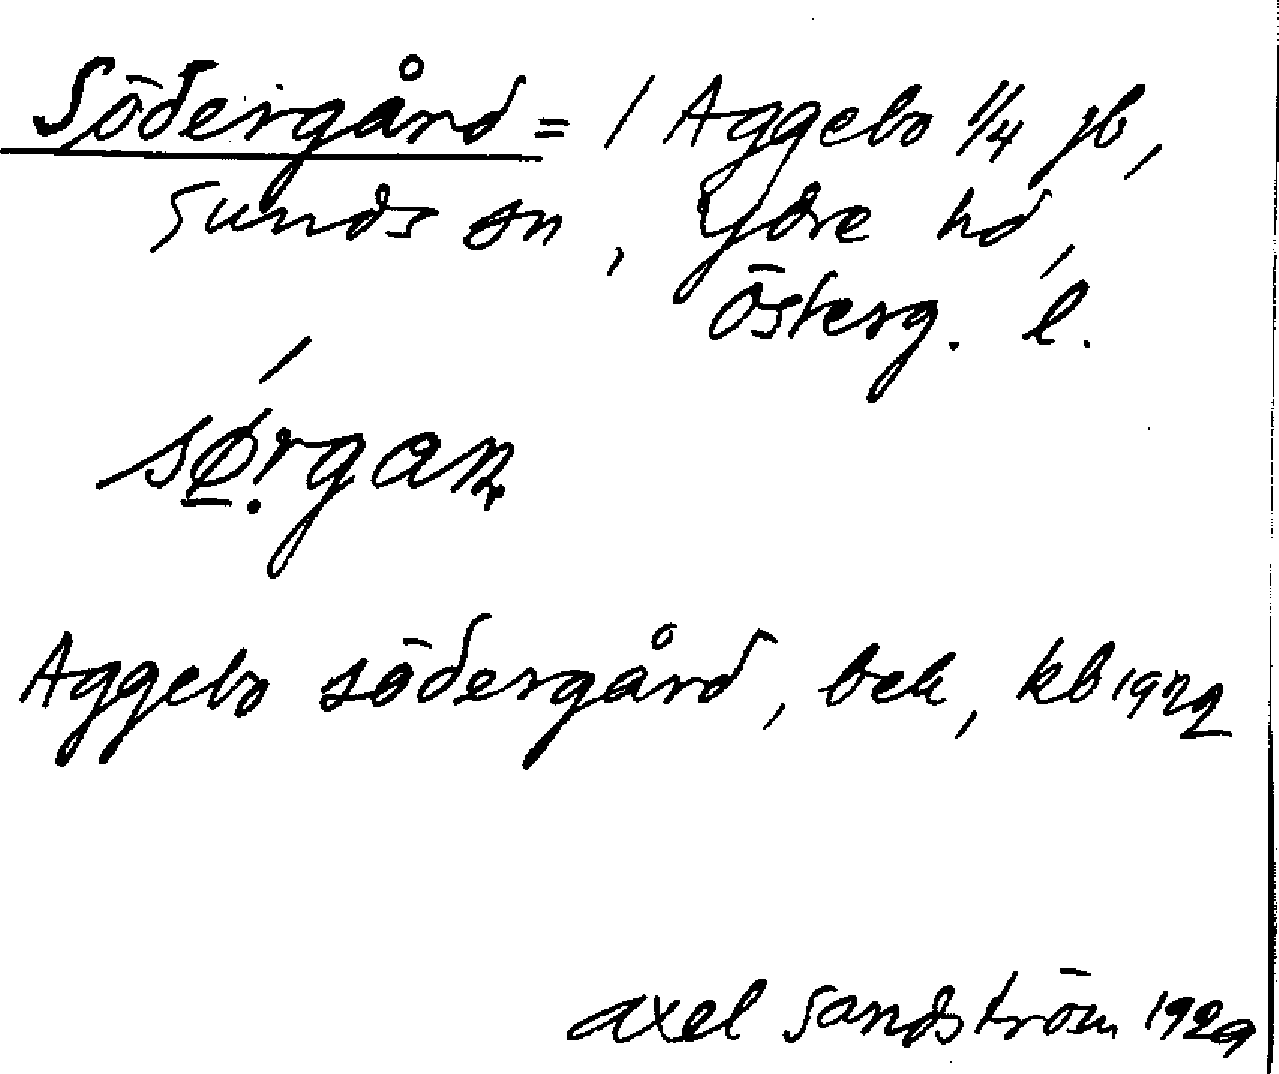 Södergård = / Aggebo 1/4 jb,
Sunds sn, Ydre hd,
Österg. l.
/
sø̱ṛgan
Aggebo södergård, bek, kb 1922
Axel Sandström 1929